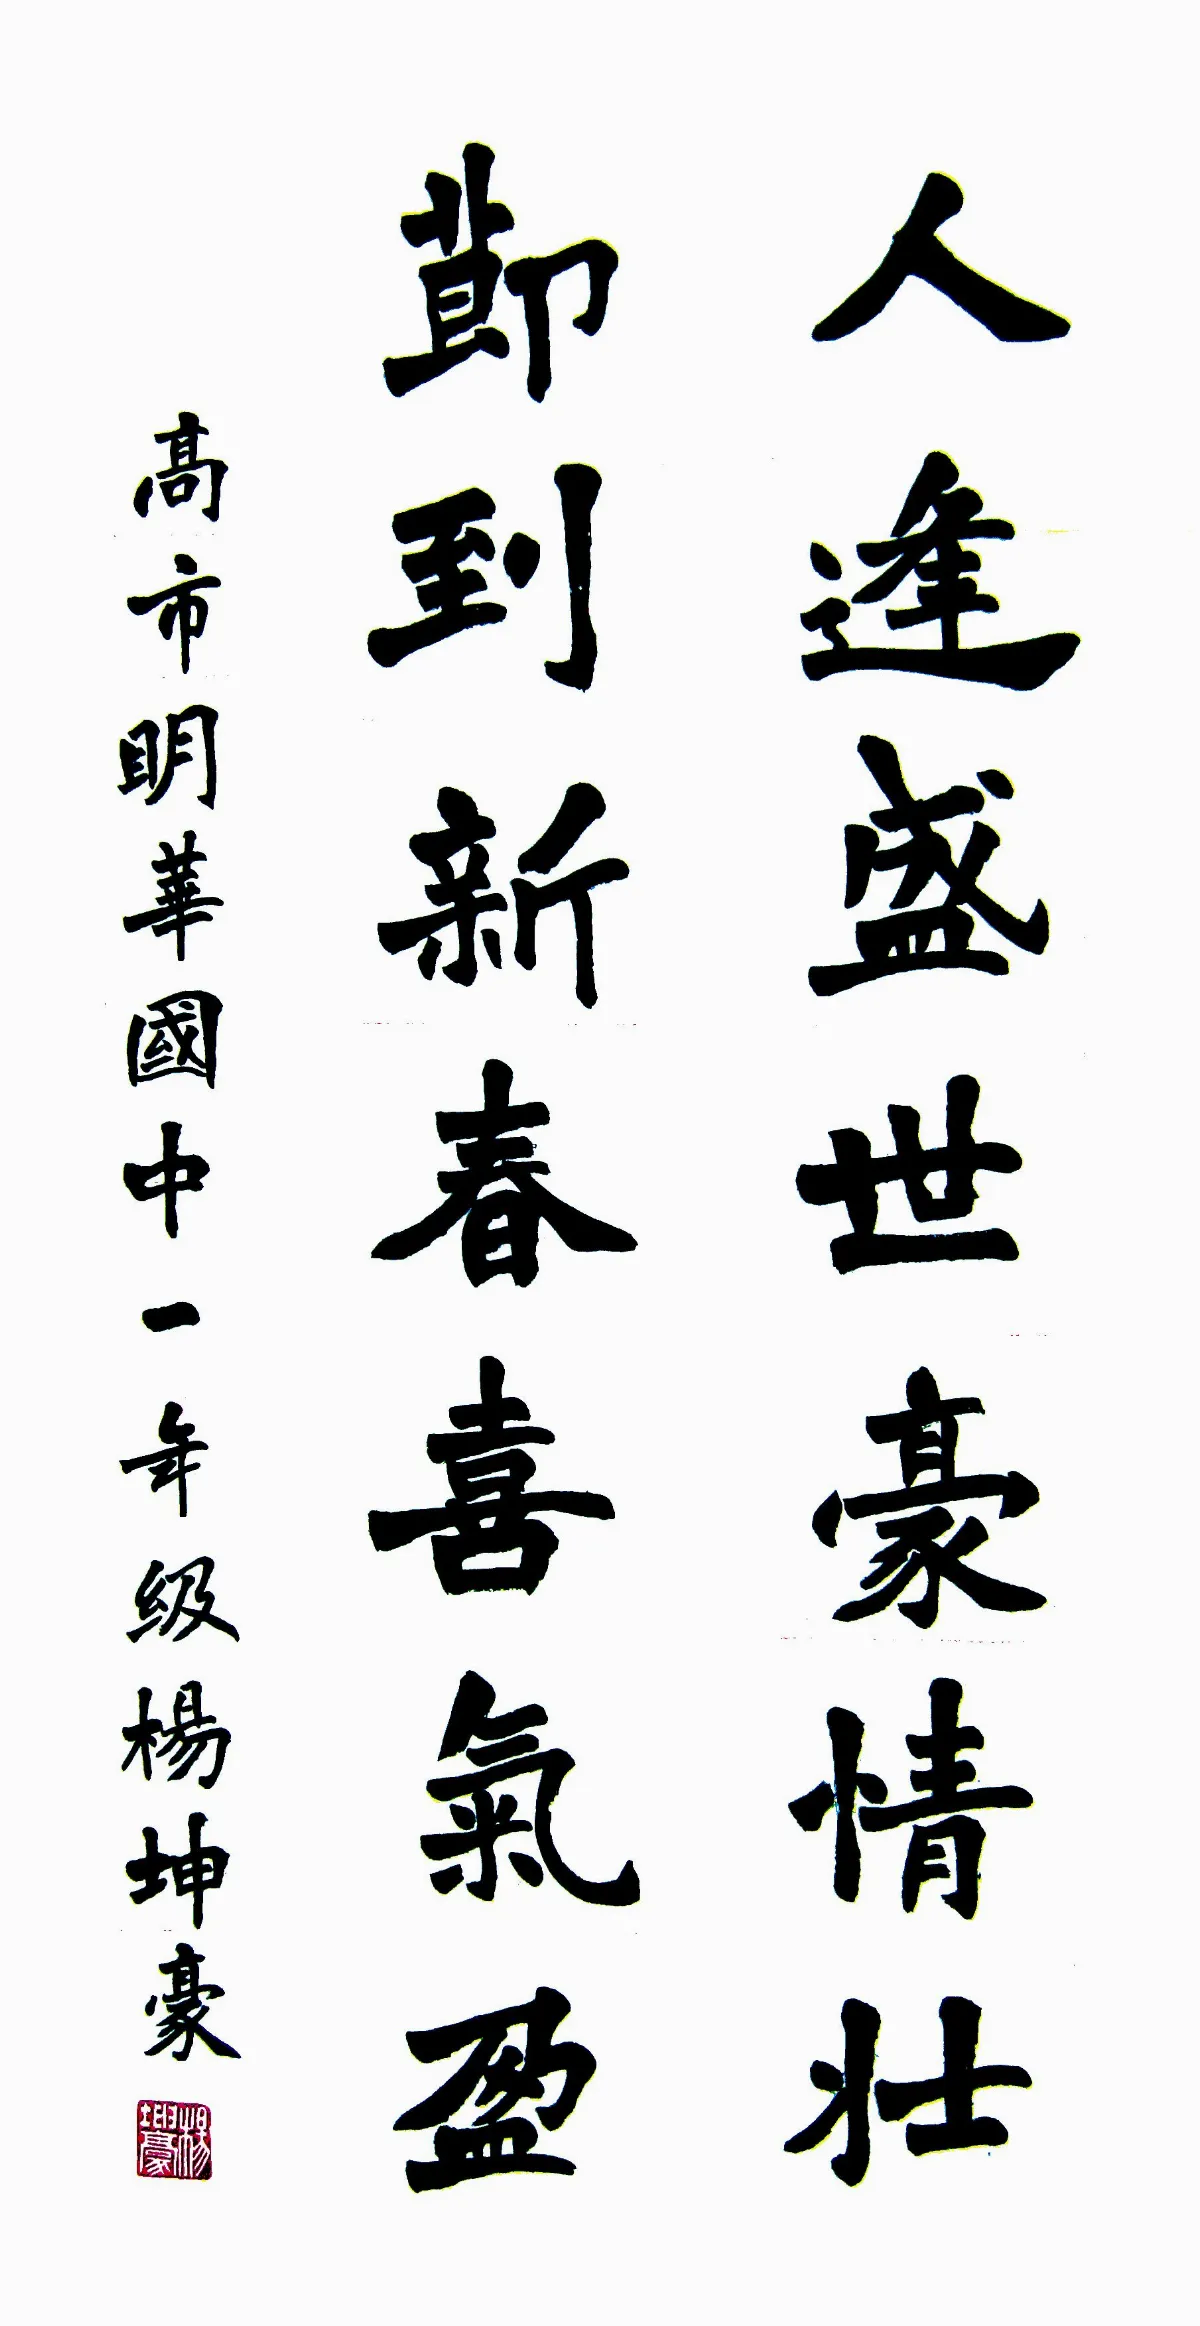 人逢盛世豪情壯
節到新春喜氣盈
高市明華國中一年級楊坤豪
楊坤豪